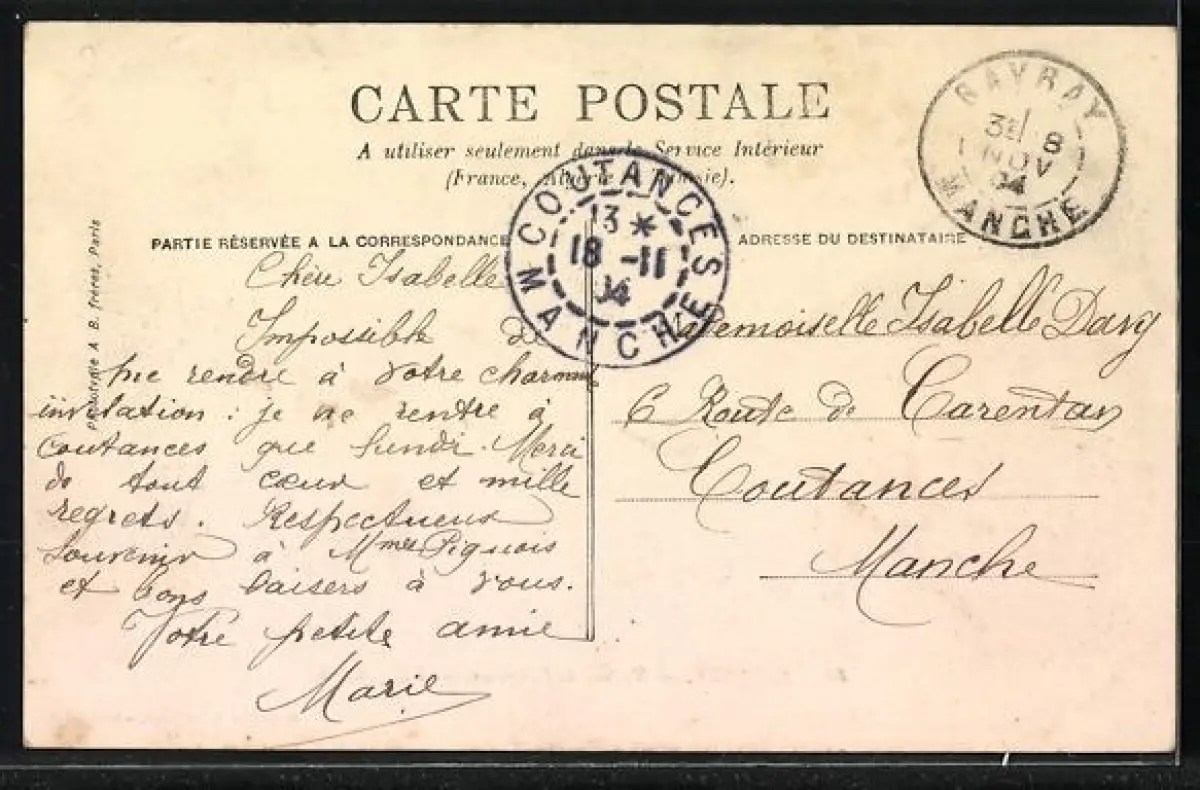 CARTE POSTALE
A utiliser seulement dans le Service Intérieur
(France, Algérie & Tunisie).
GAVRAY
3E 8
NOV
04
MANCHE
COUTANCES
13 *
18 -11
04
MANCHE
PARTIE RÉSERVÉE A LA CORRESPONDANCE
ADRESSE DU DESTINATAIRE
A B. frères, Paris
Chère Isabelle
Impossible de
me rendre à votre charmante
invitation : je ne rentre à
Coutances que lundi. Merci
de tout cœur et mille
regrets. Respectueux
souvenir à Mmes Pignois
et bons baisers à vous.
Votre petite amie
Marie
Mademoiselle Isabelle Davy
6 Route de Carentan
Coutances
Manche